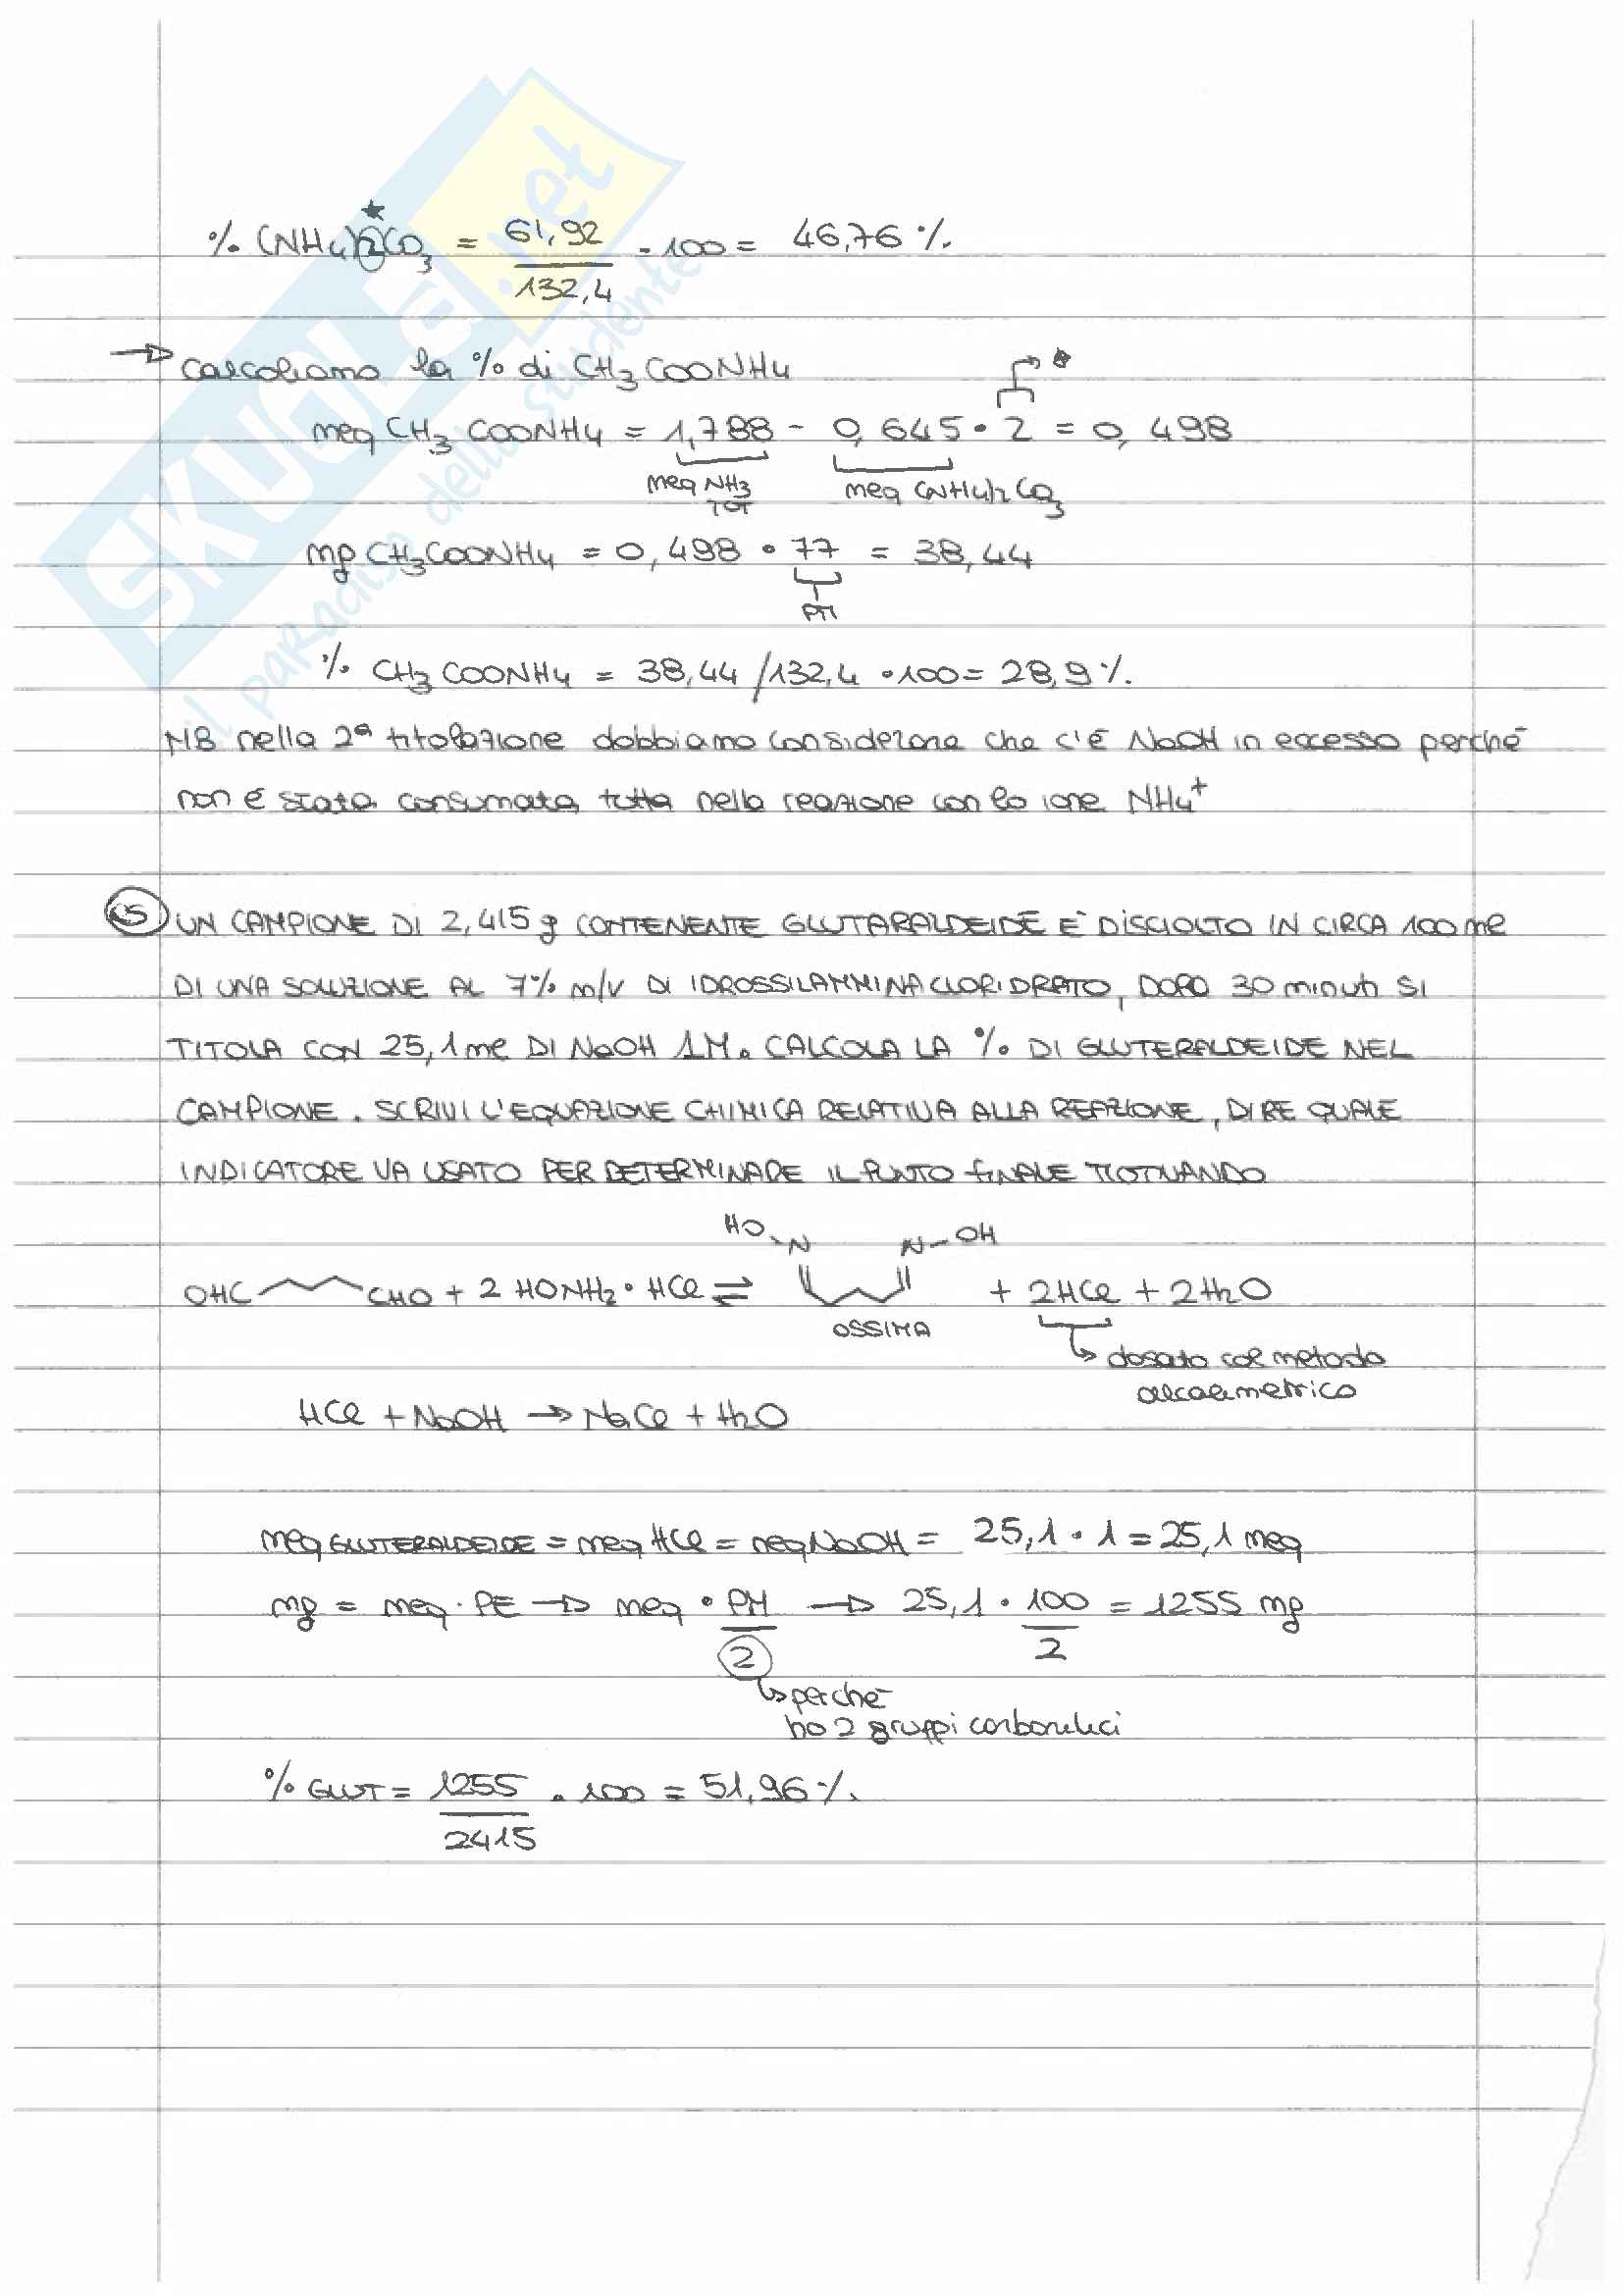 SKUOLA.net
il paradiso dello studente
% (NH4)2CO3 = 61,92 / 132,4 · 100 = 46,76 %
→ Calcoliamo la % di CH3COONH4
meq CH3COONH4 = 1,788 - 0,645 · 2 = 0,498
meq NH3 TOT meq (NH4)2CO3
mg CH3COONH4 = 0,498 · 77 = 38,44
PM
% CH3COONH4 = 38,44/132,4 · 100 = 28,9 %
NB nella 2ª titolazione dobbiamo considerare che c'é NaOH in eccesso perché
non é stata consumata tutta nella reazione con lo ione NH4+
5 UN CAMPIONE DI 2,415 g CONTENENTE GLUTARALDEIDE E' DISCIOLTO IN CIRCA 100 ml
DI UNA SOLUZIONE AL 7% m/v DI IDROSSILAMMINA CLORIDRATO, DOPO 30 minuti SI
TITOLA CON 25,1 ml DI NaOH 1M. CALCOLA LA % DI GLUTERALDEIDE NEL
CAMPIONE. SCRIVI L'EQUAZIONE CHIMICA RELATIVA ALLA REAZIONE, DIRE QUALE
INDICATORE VA USATO PER DETERMINARE IL PUNTO FINALE
HO N N-OH
OHC CHO + 2 HONH2 · HCl ⇌ + 2HCl + 2H2O
OSSIMA
dosato col metodo
alcalimetrico
HCl + NaOH → NaCl + H2O
meq GLUTERALDEIDE = meq HCl = meq NaOH = 25,1 · 1 = 25,1 meq
mg = meq · PE → meq · PM / 2 → 25,1 · 100 / 2 = 1255 mg
perché
ho 2 gruppi carbonilici
% GLUT = 1255 / 2415 · 100 = 51,96 %